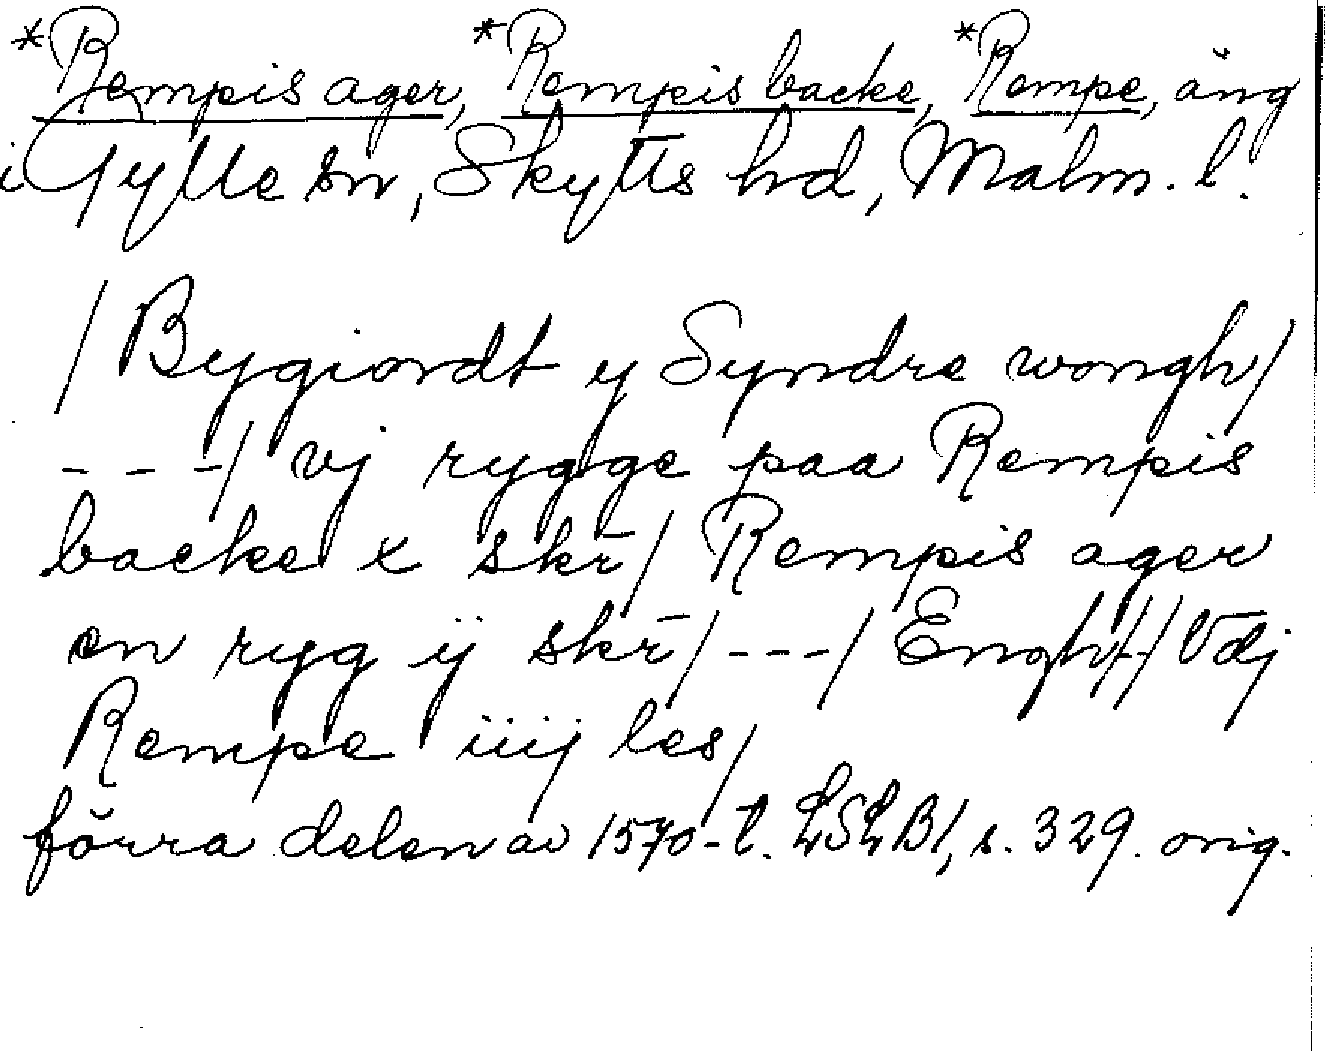 *Rempis ager, *Rempis backe, *Rempe, äng
i Gylle sn, Skytts hd, Malm. l.
/ Bygiordt y Syndre wongh /
- - - / vj rygge paa Rempis
backe x skr̄ / Rempis ager
en ryg ij skr̄ / - - - / Engh / - / Vdj
Rempe iiij les /
förra delen av 1570-t. LSLB1, s. 329. orig.